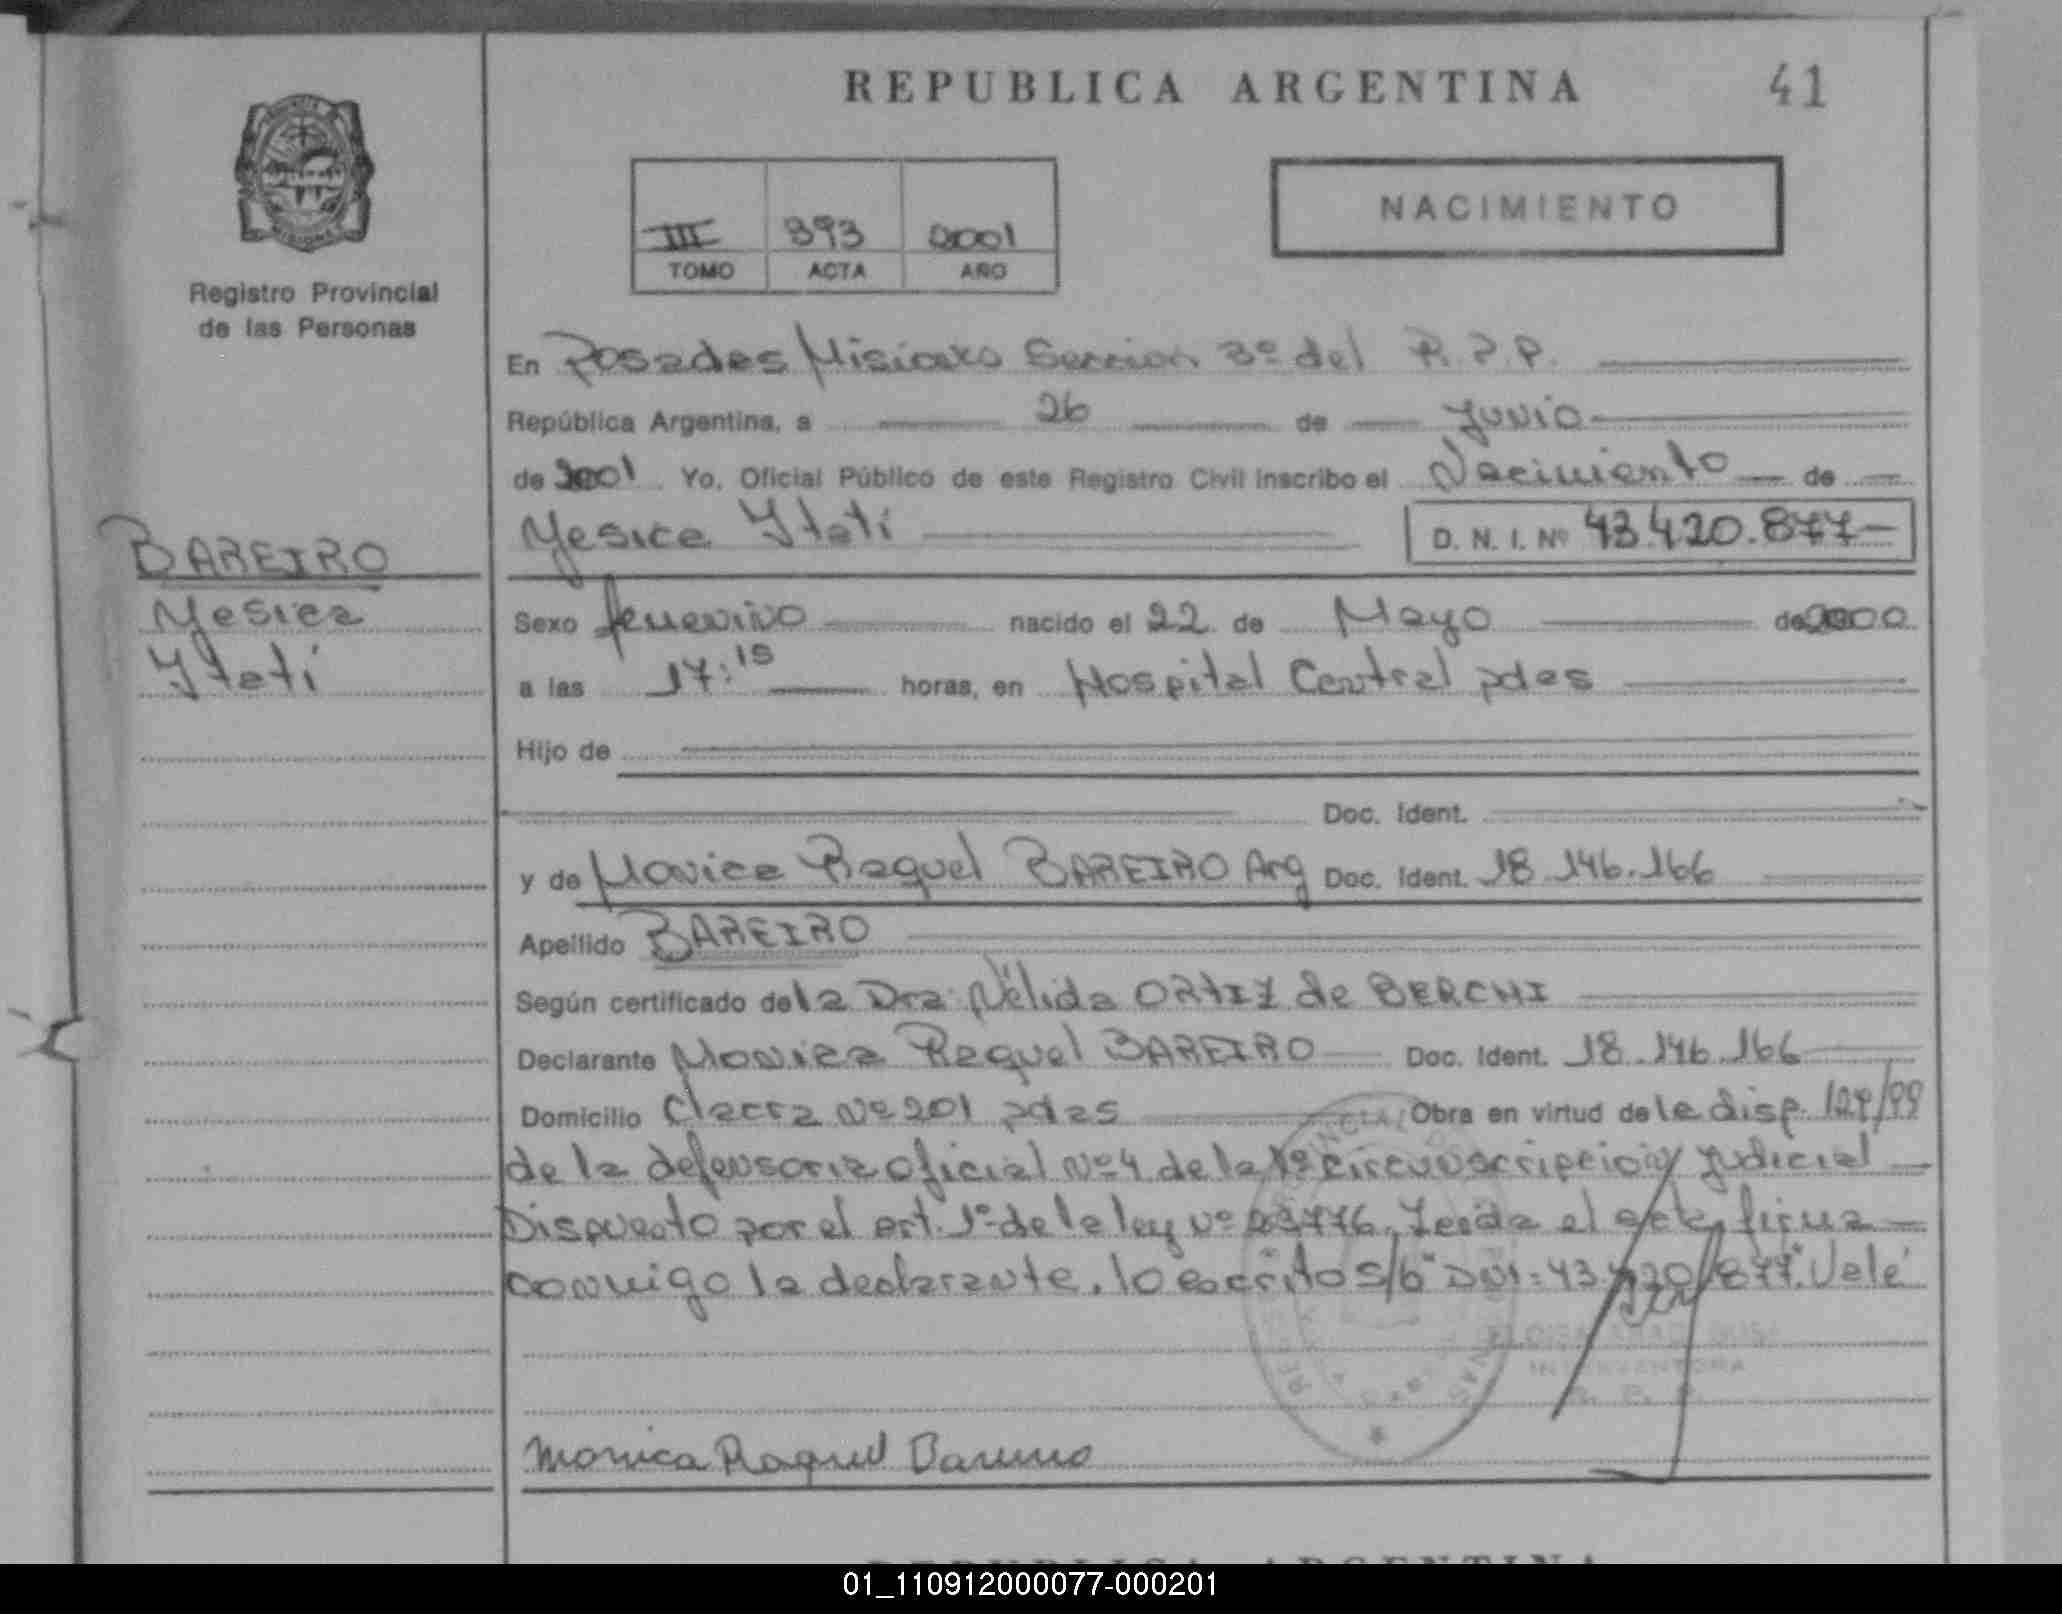 REPUBLICA ARGENTINA
41
III 393 2001
TOMO ACTA AÑO
NACIMIENTO
Registro Provincial
de las Personas
En Posadas Misiones Seccion 3º del R.P.P.
República Argentina, a 26 de Junio
de 2001 Yo, Oficial Público de este Registro Civil inscribo el Nacimiento de
Yesica Itatí D. N. I. Nº 43.420.877
BAREIRO
Yesica
Itatí
Sexo femenino nacido el 22 de Mayo de 2000
a las 17:15 horas, en Hospital Central pdas
Hijo de
Doc. Ident.
y de Monica Raquel BAREIRO Arg Doc. Ident. 18.146.166
Apellido BAREIRO
Según certificado de la Dra. Nélida ORTIZ de BERCHI
Declarante Monica Raquel BAREIRO Doc. Ident. 18.146.166
Domicilio Chacra Nº 201 pdas Obra en virtud de la disp. /99
de la defensoria oficial Nº 4 de la 1º circunscripcion Judicial
Dispuesto por el art. 1º de la ley Nº 23776, Leida el acta, firma
conmigo la declarante. lo escrito s/b "DNI: 43.420.877". Vale
INTERVENTORA
R. P. P.
Monica Raquel Bareiro
REPUBLICA ARGENTINA
01_110912000077-000201